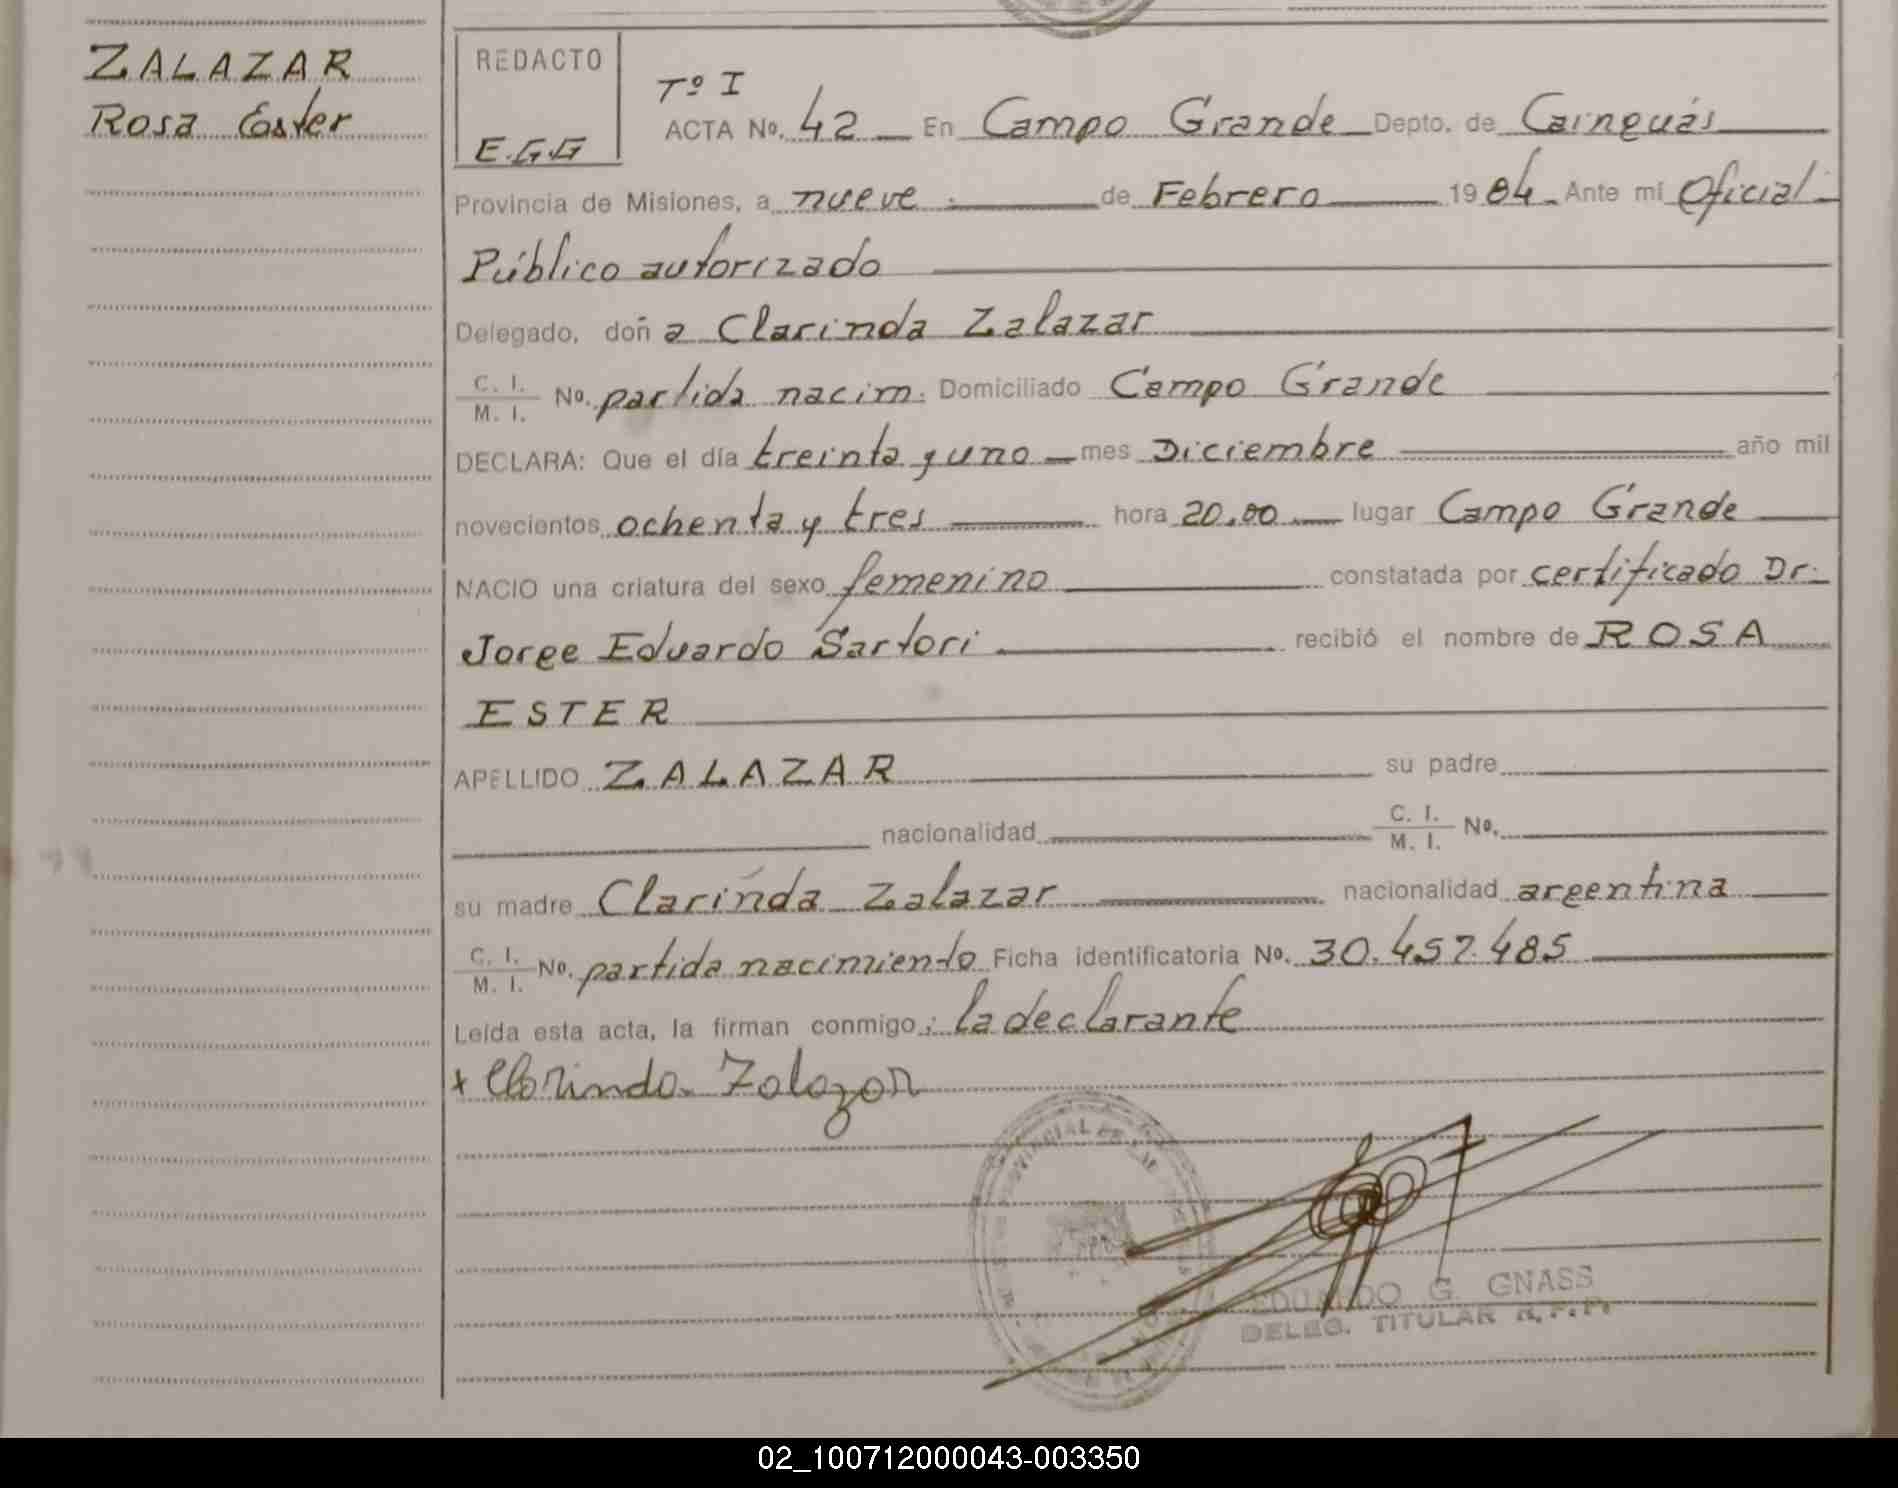 ZALAZAR
Rosa Ester
REDACTO
E.G.G
Tº I
ACTA Nº. 42 En Campo Grande Depto. de Cainguás
Provincia de Misiones, a nueve de Febrero 1984. Ante mi Oficial
Público autorizado
Delegado, doña Clarinda Zalazar
C. I. / M. I. Nº. partida nacim. Domiciliado Campo Grande
DECLARA: Que el día treinta y uno mes Diciembre año mil
novecientos ochenta y tres hora 20,00 lugar Campo Grande
NACIO una criatura del sexo femenino constatada por certificado Dr.
Jorge Eduardo Sartori recibió el nombre de ROSA
ESTER
APELLIDO ZALAZAR su padre
nacionalidad C. I. / M. I. Nº.
su madre Clarinda Zalazar nacionalidad argentina
C. I. / M. I. Nº. partida nacimiento Ficha identificatoria Nº. 30.457.485
Leída esta acta, la firman conmigo: la declarante
+ Clorinda Zalazar
EDUARDO G. GNASS
DELEG. TITULAR R.P.P.
02_100712000043-003350